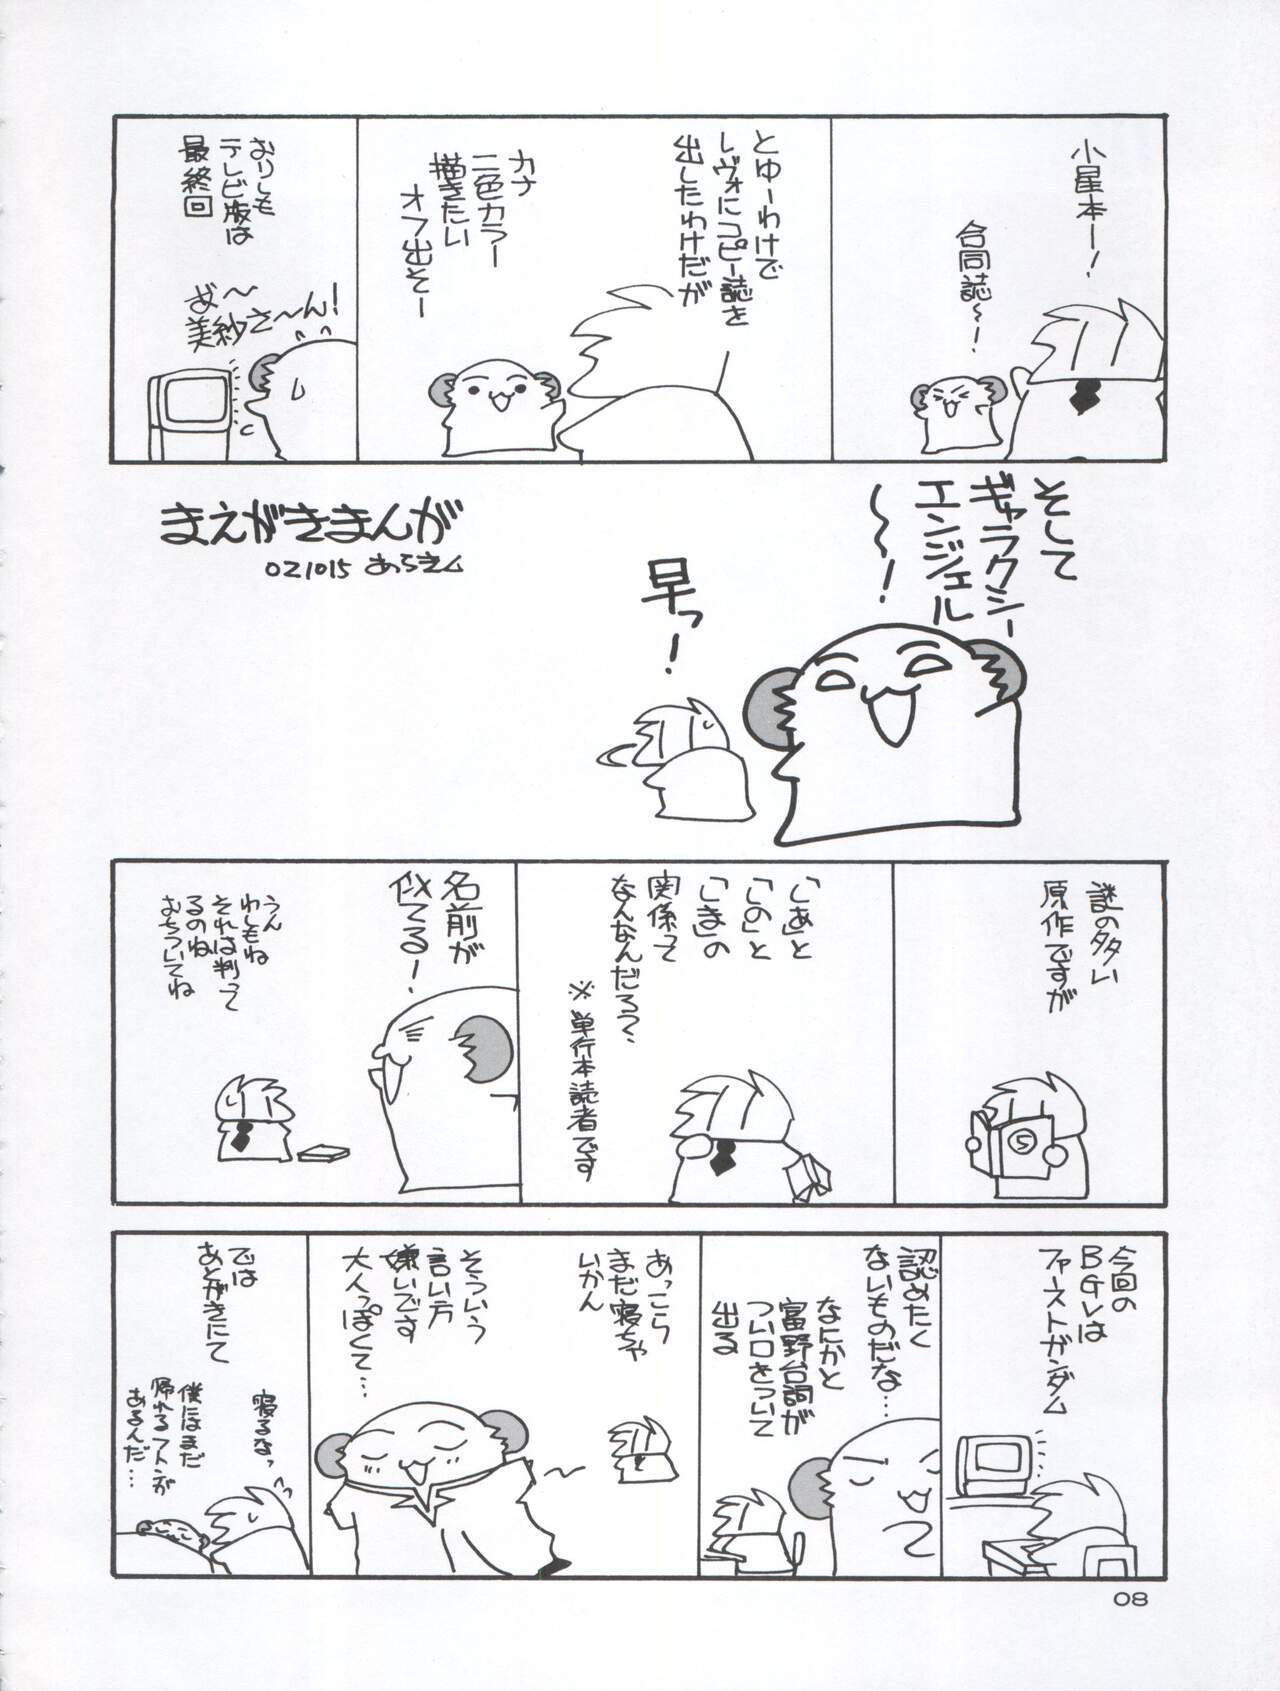 小星本ー!
合同誌〜!
とゆーわけで
レヴォにコピー誌を
出したわけだが
カナ
二色カラー
描きたい
オフ出そー
おりしも
テレビ版は
最終回
あ〜
美紗さ〜ん!
そして
ギャラクシー
エンジェル
〜〜!
早っ!
まえがきまんが
021015 あらえム
謎の多い
原作ですが
「あ」と
「の」と
「ま」の
関係って
なんなんだろ?
※単行本読者です
名前が
似てる!
うん
わしもね
それは判って
るのね
おちついてね
今回の
BGVは
ファーストガンダム
認めたく
ないものだな…
なにかと
富野台詞が
つい口をついて
出る
あっこら
まだ寝ちゃ
いかん
そういう
言い方
嫌いです
大人っぽくて…
では
あとがきにて
寝るなっ
僕にはまだ
帰れるフトンが
あるんだ…
08